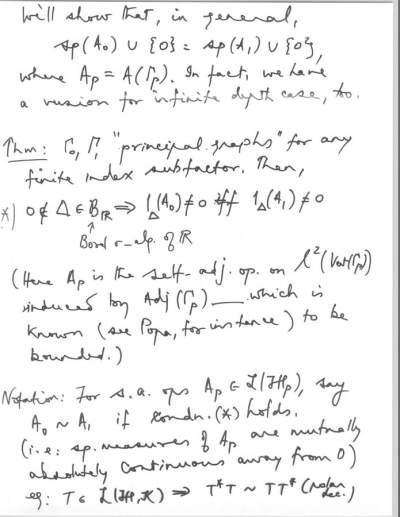 We'll show that, in general,
sp(A₀) ∪ {0} = sp(A₁) ∪ {0},
where Aₚ = A(Γₚ). In fact, we have
a version for infinite depth case, too.
Thm: Γ₀, Γ₁ "principal graphs" for any
finite index subfactor. Then,
*) 0 ∉ Δ ∈ B_ℝ ⇒ 1_Δ(A₀) ≠ 0 iff 1_Δ(A₁) ≠ 0
Borel σ-alg. of ℝ
(Here Aₚ is the self-adj. op. on ℓ²(Vert(Γₚ))
induced by Adj(Γₚ) — which is
known (see Popa, for instance) to be
bounded.)
Notation: For s.a. ops Aₚ ∈ L(ℋₚ), say
A₀ ~ A₁ if condn. (*) holds.
(i.e: sp. measures of Aₚ are mutually
absolutely continuous away from 0)
eg: T ∈ L(ℋ, K) ⇒ T*T ~ TT* (polar
dec.)